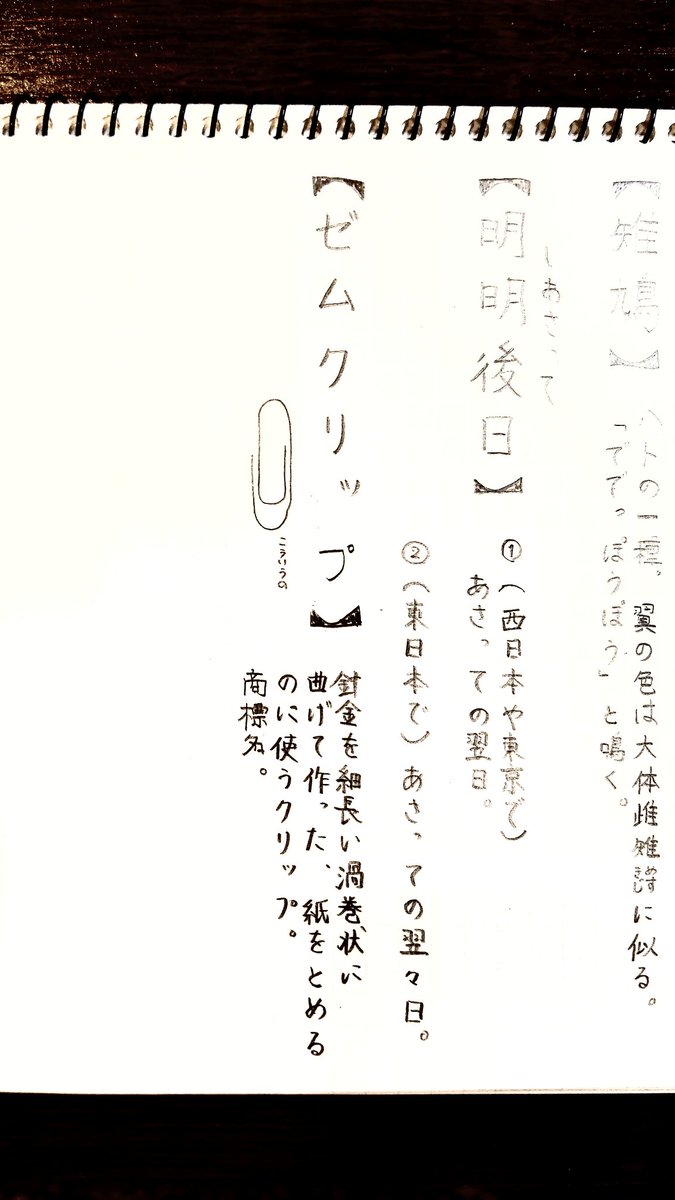 【雉鳩】
ハトの一種。翼の色は大体雌雉に似る。
「ででっぽうぽう」と鳴く。
しあさって
【明明後日】
①(西日本や東京で)
あさっての翌日。
②(東日本で)あさっての翌々日。
【ゼムクリップ】
針金を細長い渦巻状に
曲げて作った、紙をとめる
のに使うクリップ。
商標名。
こういうの